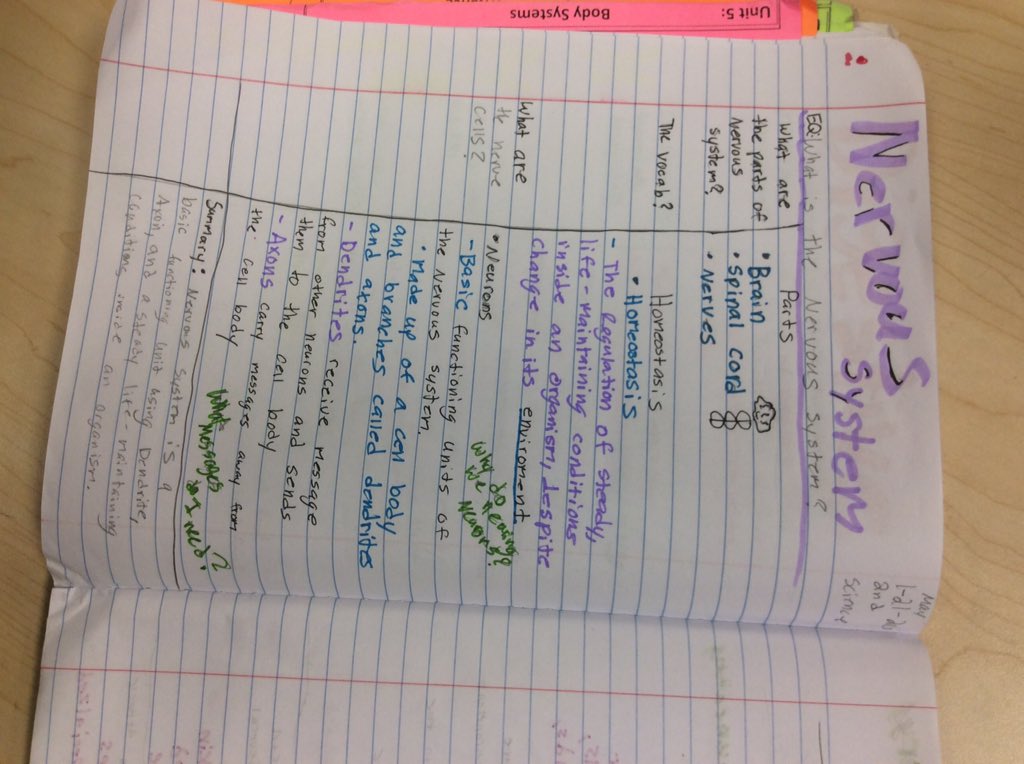 Unit 5: Body Systems
Nervous System
May
and
Science
EQ: What is the Nervous System?
What are
the parts of
Nervous
system?
Parts
• Brain
• Spinal cord
• Nerves
The vocab?
Homeostasis
• Homeostasis
- The regulation of steady,
life-maintaining conditions
inside an organism, despite
change in its enviroment.
What are
the nerve
cells?
• Neurons
- Basic functioning units of
the Nervous system.
• Made up of a cell body
and branches called dendrites
and axons.
- Dendrites receive message
from other neurons and sends
them to the cell body
- Axons carry messages away from
the cell body
why so many?
we neurons?
what messages
need?
Summary: Nervous system is a
basic functioning unit using Dendrite,
Axon, and a steady life-maintaining
conditions inside an organism.